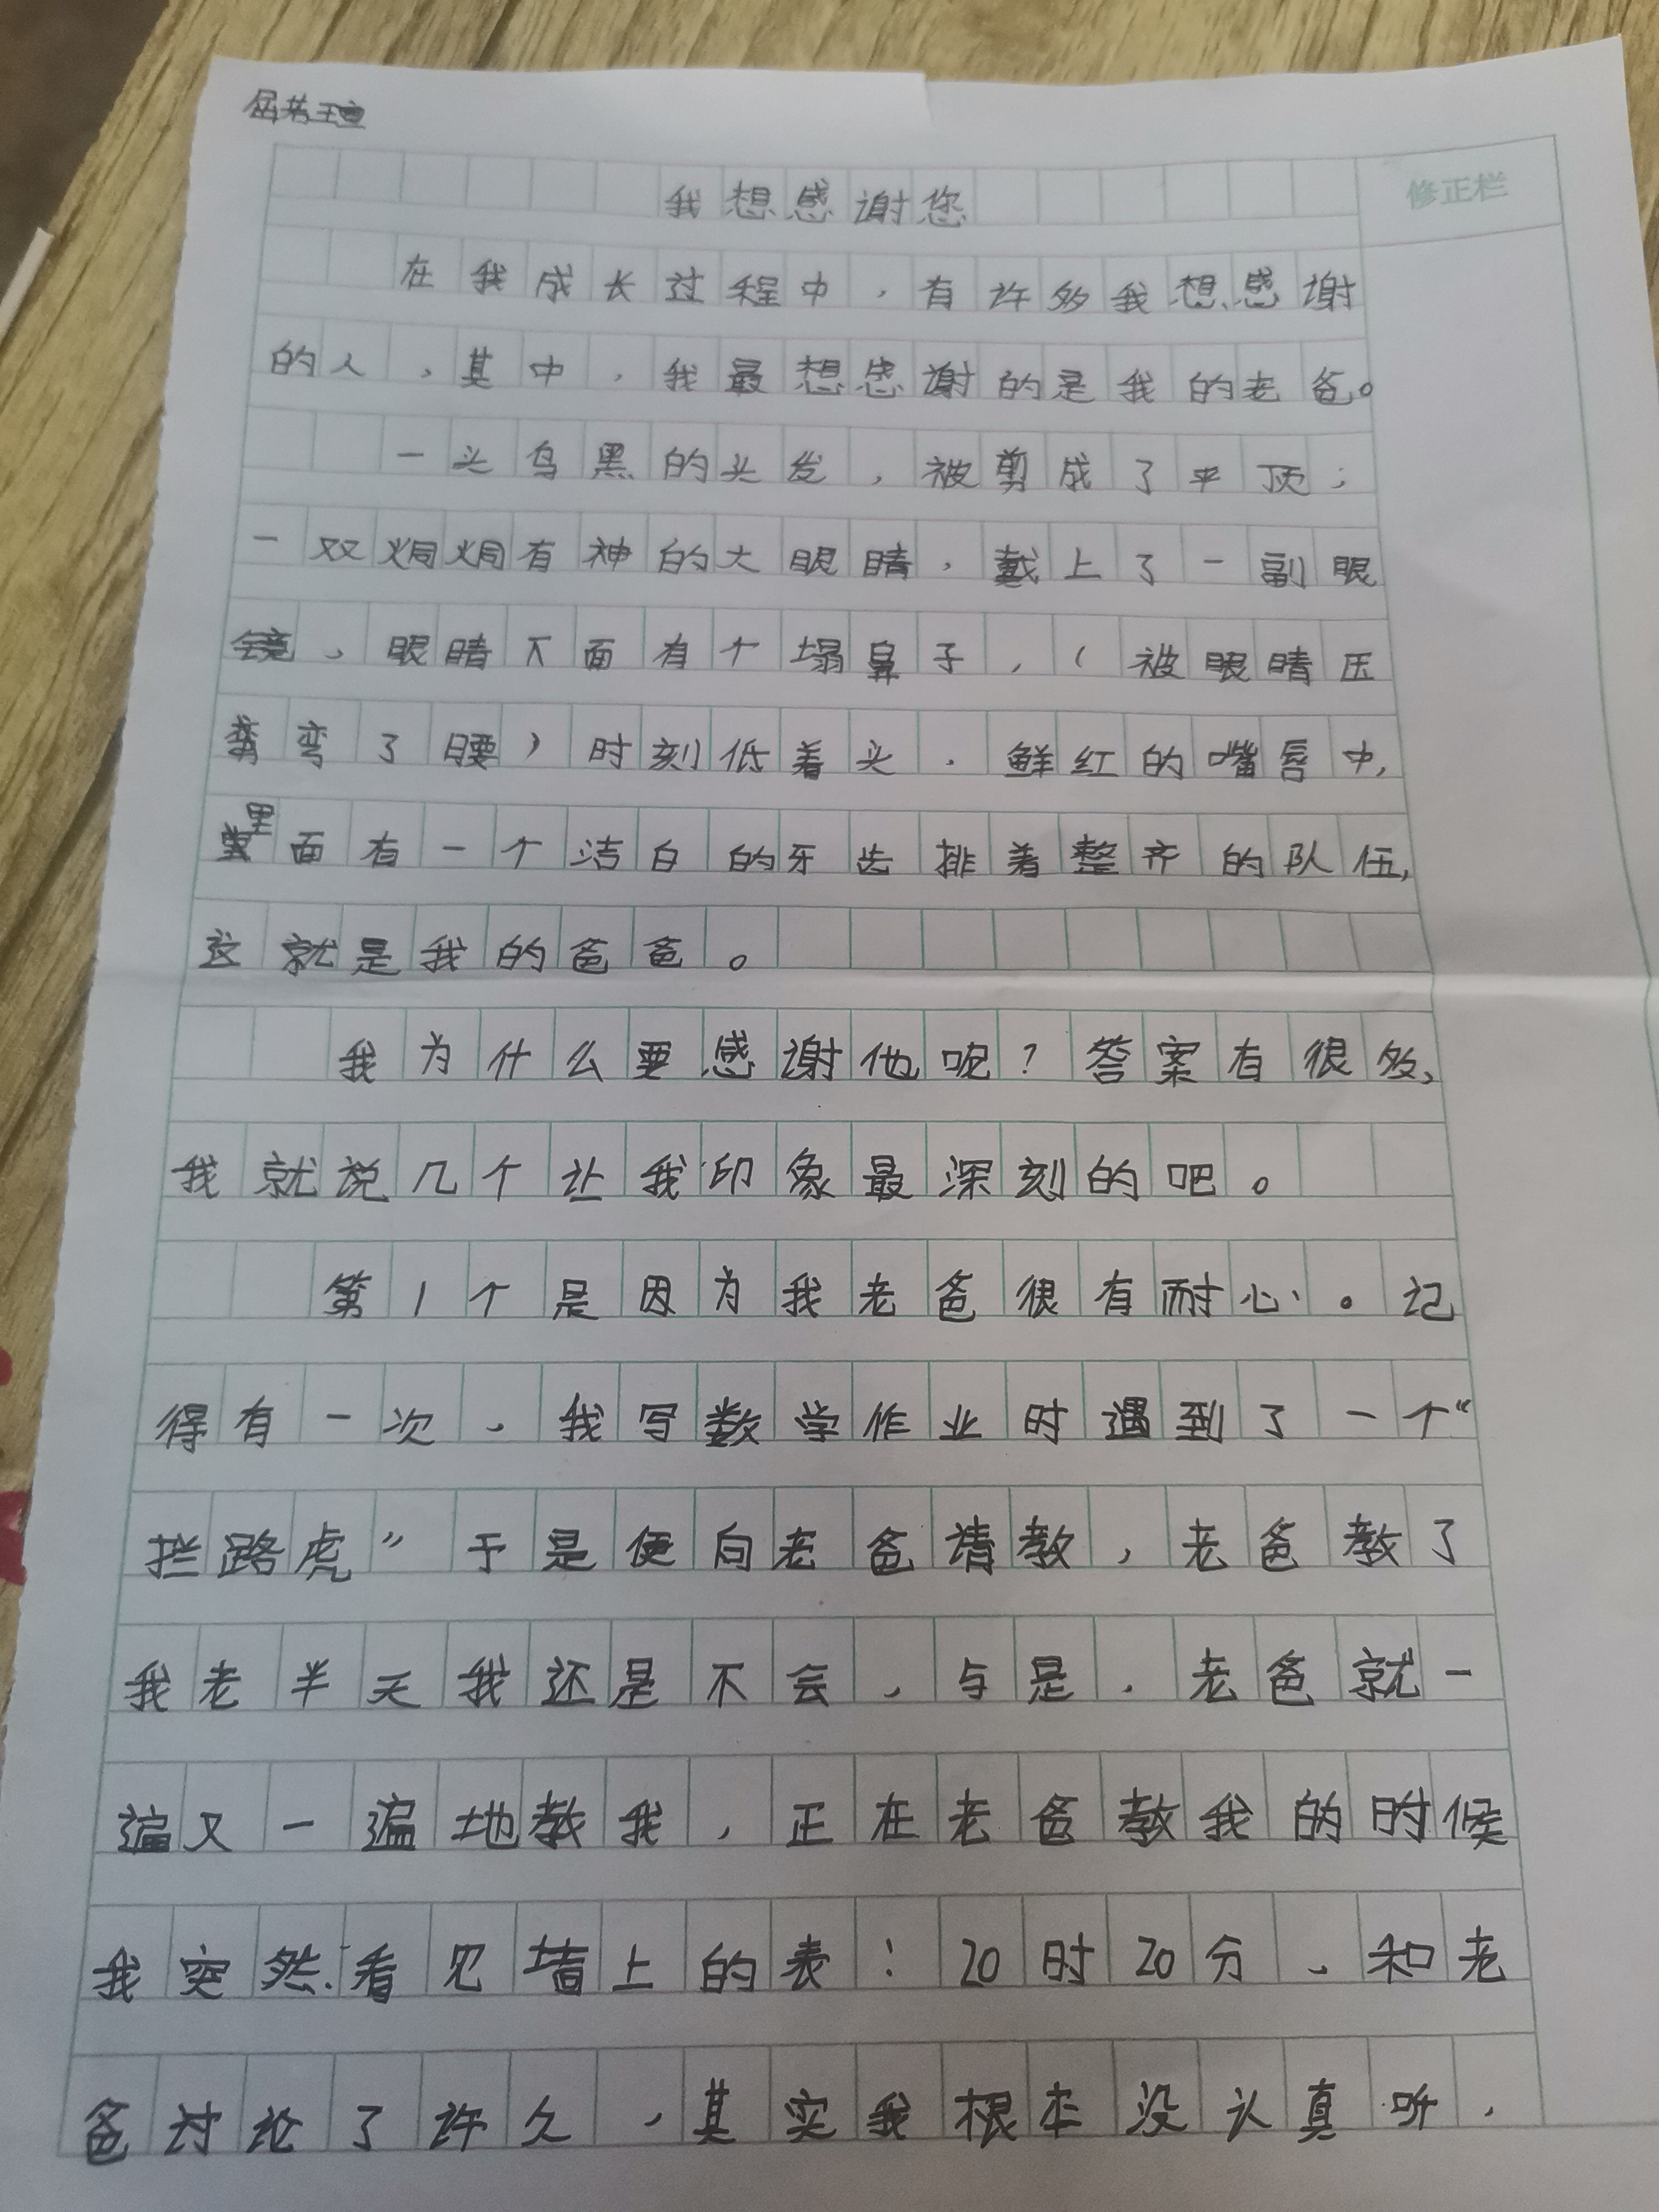 修正栏
我想感谢您
在我成长过程中，有许多我想感谢
的人，其中，我最想感谢的是我的老爸。
一头乌黑的头发，被剪成了平顶；
一双炯炯有神的大眼睛，戴上了一副眼
镜，眼睛下面有个塌鼻子，（被眼睛压
弯了腰）时刻低着头．鲜红的嘴唇中，
里面有一个洁白的牙齿排着整齐的队伍，
这就是我的爸爸。
我为什么要感谢他呢？答案有很多，
我就说几个让我印象最深刻的吧。
第1个是因为我老爸很有耐心。记
得有一次，我写数学作业时遇到了一个“
拦路虎”于是便向老爸请教，老爸教了
我老半天我还是不会，与是，老爸就一
遍又一遍地教我，正在老爸教我的时候
我突然看见墙上的表！20时20分，和老
爸讨论了许久，其实我根本没认真听，